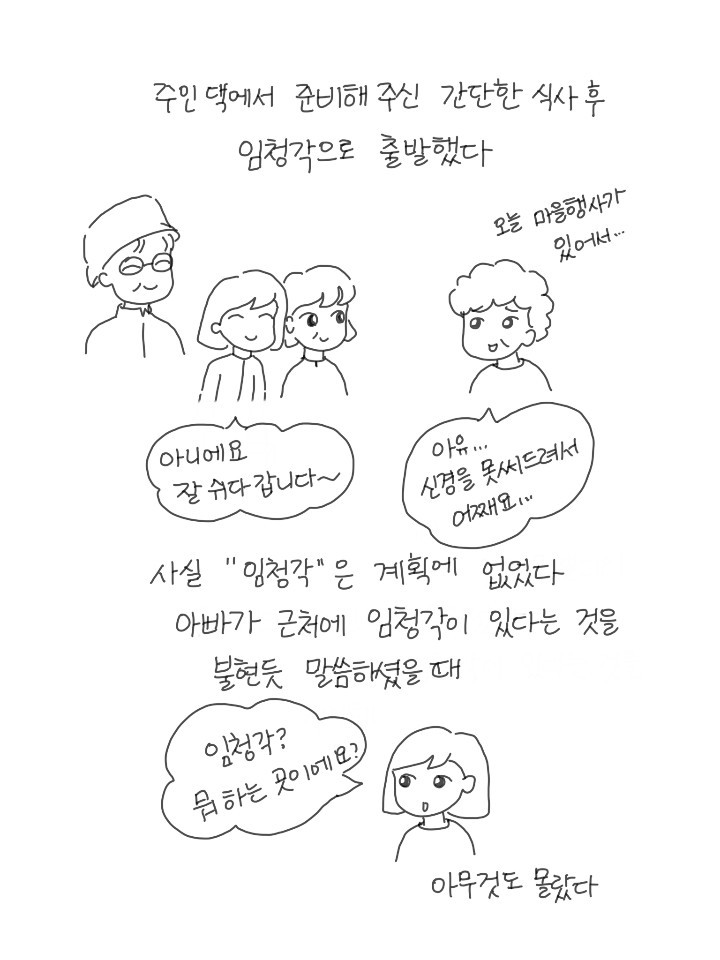 주인댁에서 준비해주신 간단한 식사 후
임청각으로 출발했다
오늘 마을행사가
있어서...
아니에요
잘 쉬다 갑니다~
아유...
신경을 못써드려서
어째요...
사실 "임청각"은 계획에 없었다
아빠가 근처에 임청각이 있다는 것을
불현듯 말씀하셨을 때
임청각?
뭐 하는 곳이에요?
아무것도 몰랐다